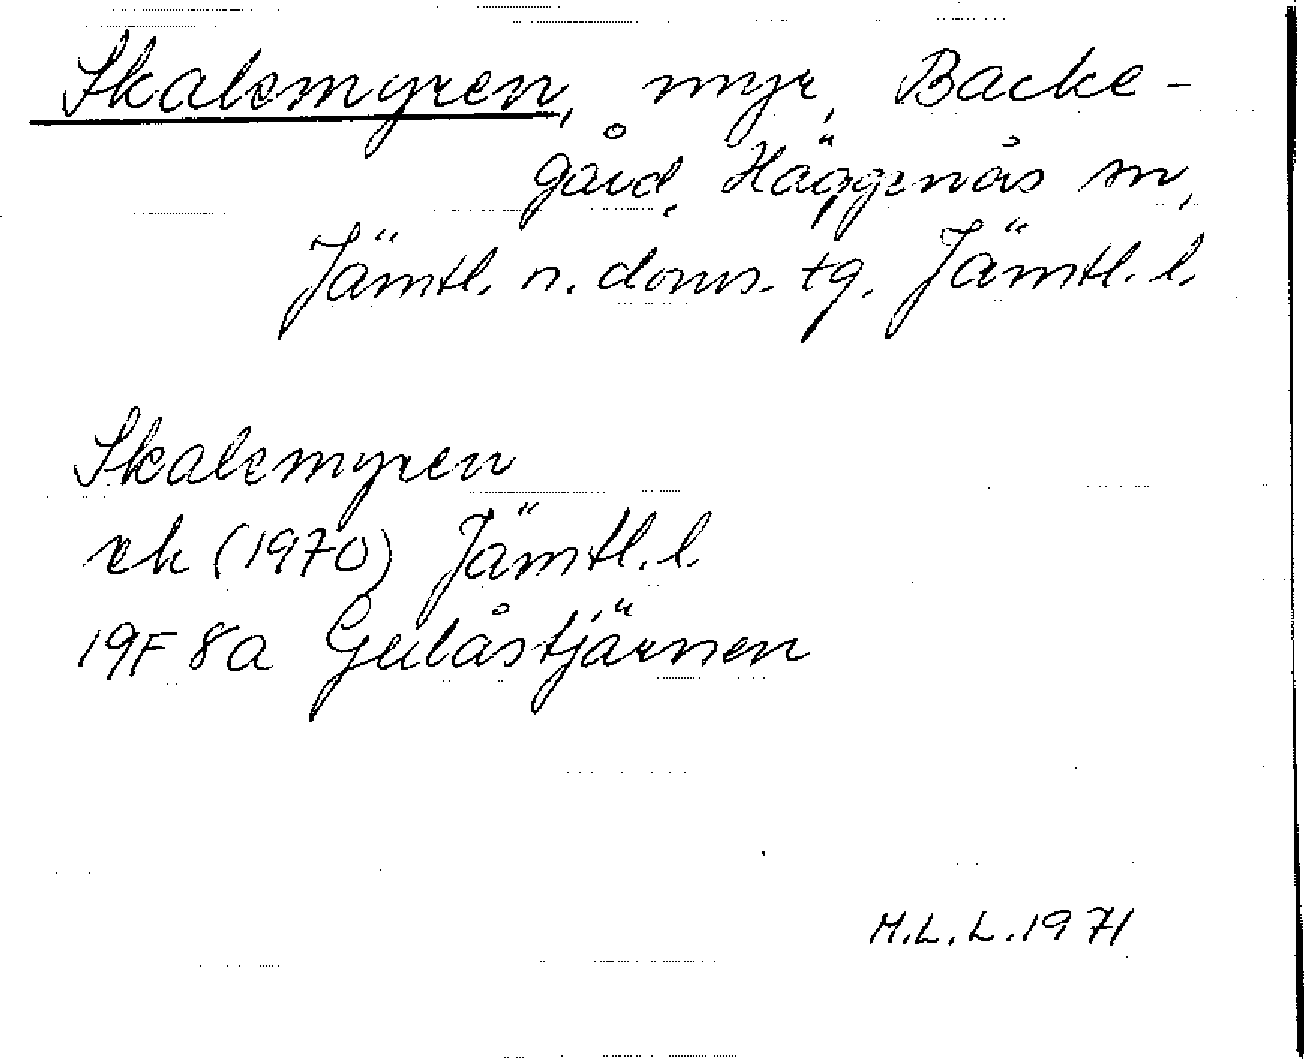 Skalemyren, myr, Backe-
gård, Häggenås sn,
Jämtl. n. doms. tg. Jämtl. l.
Skalemyren
ek (1970) Jämtl. l.
19F 8a Gulåstjärnen
M.L.L. 1971